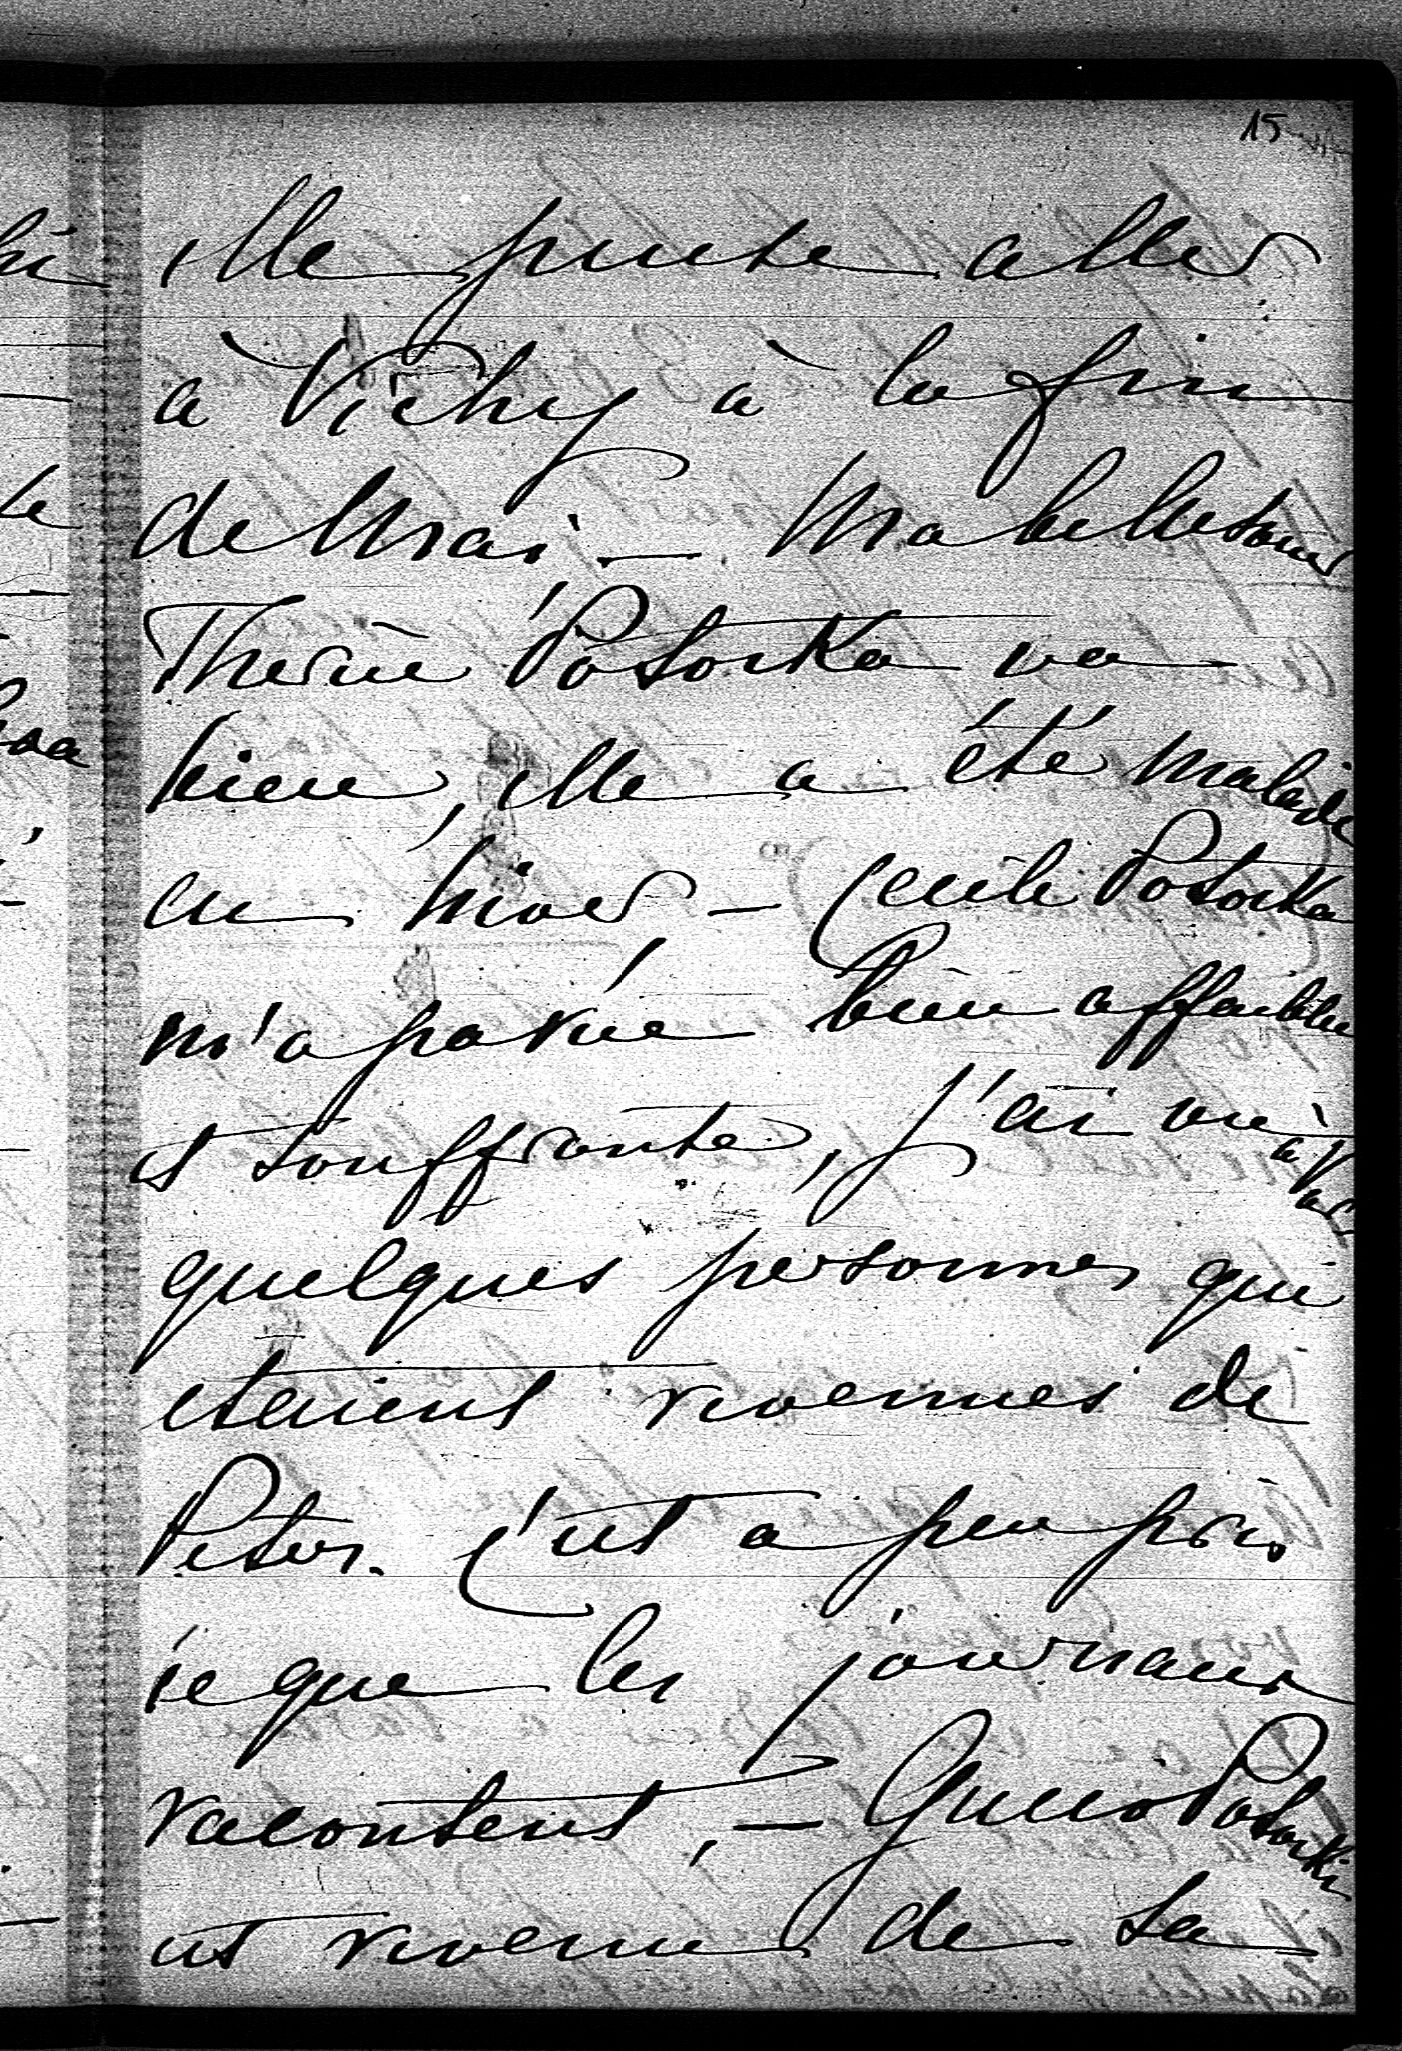 15
elle pense aller
à Vichy à la fin
de Mai. — Ma belle soeur
Therèse Potocka va
bien, elle a été malade
cu hiver — Cecile Potocka
m'a parue bien affaiblie
et souffrante, j'ai vu à Var
quelques personnes qui
etaient revenues de
Peter. C'est a peu près
ce que les journaux
racontent, — Gucio Potocki
est revenu de sa